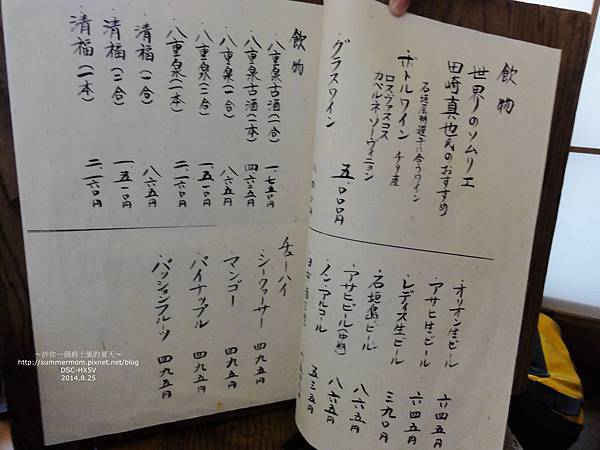 飲物
世界のソムリエ
田崎真也氏のおすすめ
石垣屋料理に合うワイン
ボトルワイン チリ産
ロスヴァスコス
カベルネソーヴィニョン
五、〇〇〇円
・グラスワイン
・オリオン生ビール 六四五円
・アサヒ生ビール 六四五円
・レディス生ビール 三九〇円
・石垣島ビール 八六五円
・アサヒビール(中瓶) 八六五円
・ノンアルコール 五三五円
飲物
・八重泉古酒(一合) 一、七五〇円
・八重泉古酒(二本) 四、六三五円
・八重泉(一合) 八六五円
・八重泉(二合) 一、五一〇円
・八重泉(一本) 二、一六〇円
・清福(一合) 八六五円
・清福(二合) 一、五一〇円
・清福(一本) 二、一六〇円
チューハイ
・シークワーサー 四九五円
・マンゴー 四九五円
・パイナップル 四九五円
・パッションフルーツ 四九五円
～許你一個爵士風的夏天～
http://summermom.pixnet.net/blog
DSC-HX5V
2014.8.25